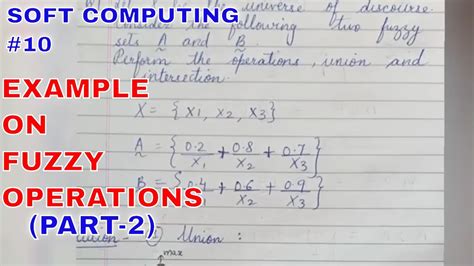 SOFT COMPUTING
#10
EXAMPLE
ON
FUZZY
OPERATIONS
(PART-2)
the universe of discourse.
Consider the following two fuzzy
sets A and B.
Perform the operations, union and
intersection.
X = { x1, x2, x3}
A = { 0.2/x1 + 0.8/x2 + 0.7/x3 }
B = { 0.4/x1 + 0.6/x2 + 0.9/x3 }
① Union :
max